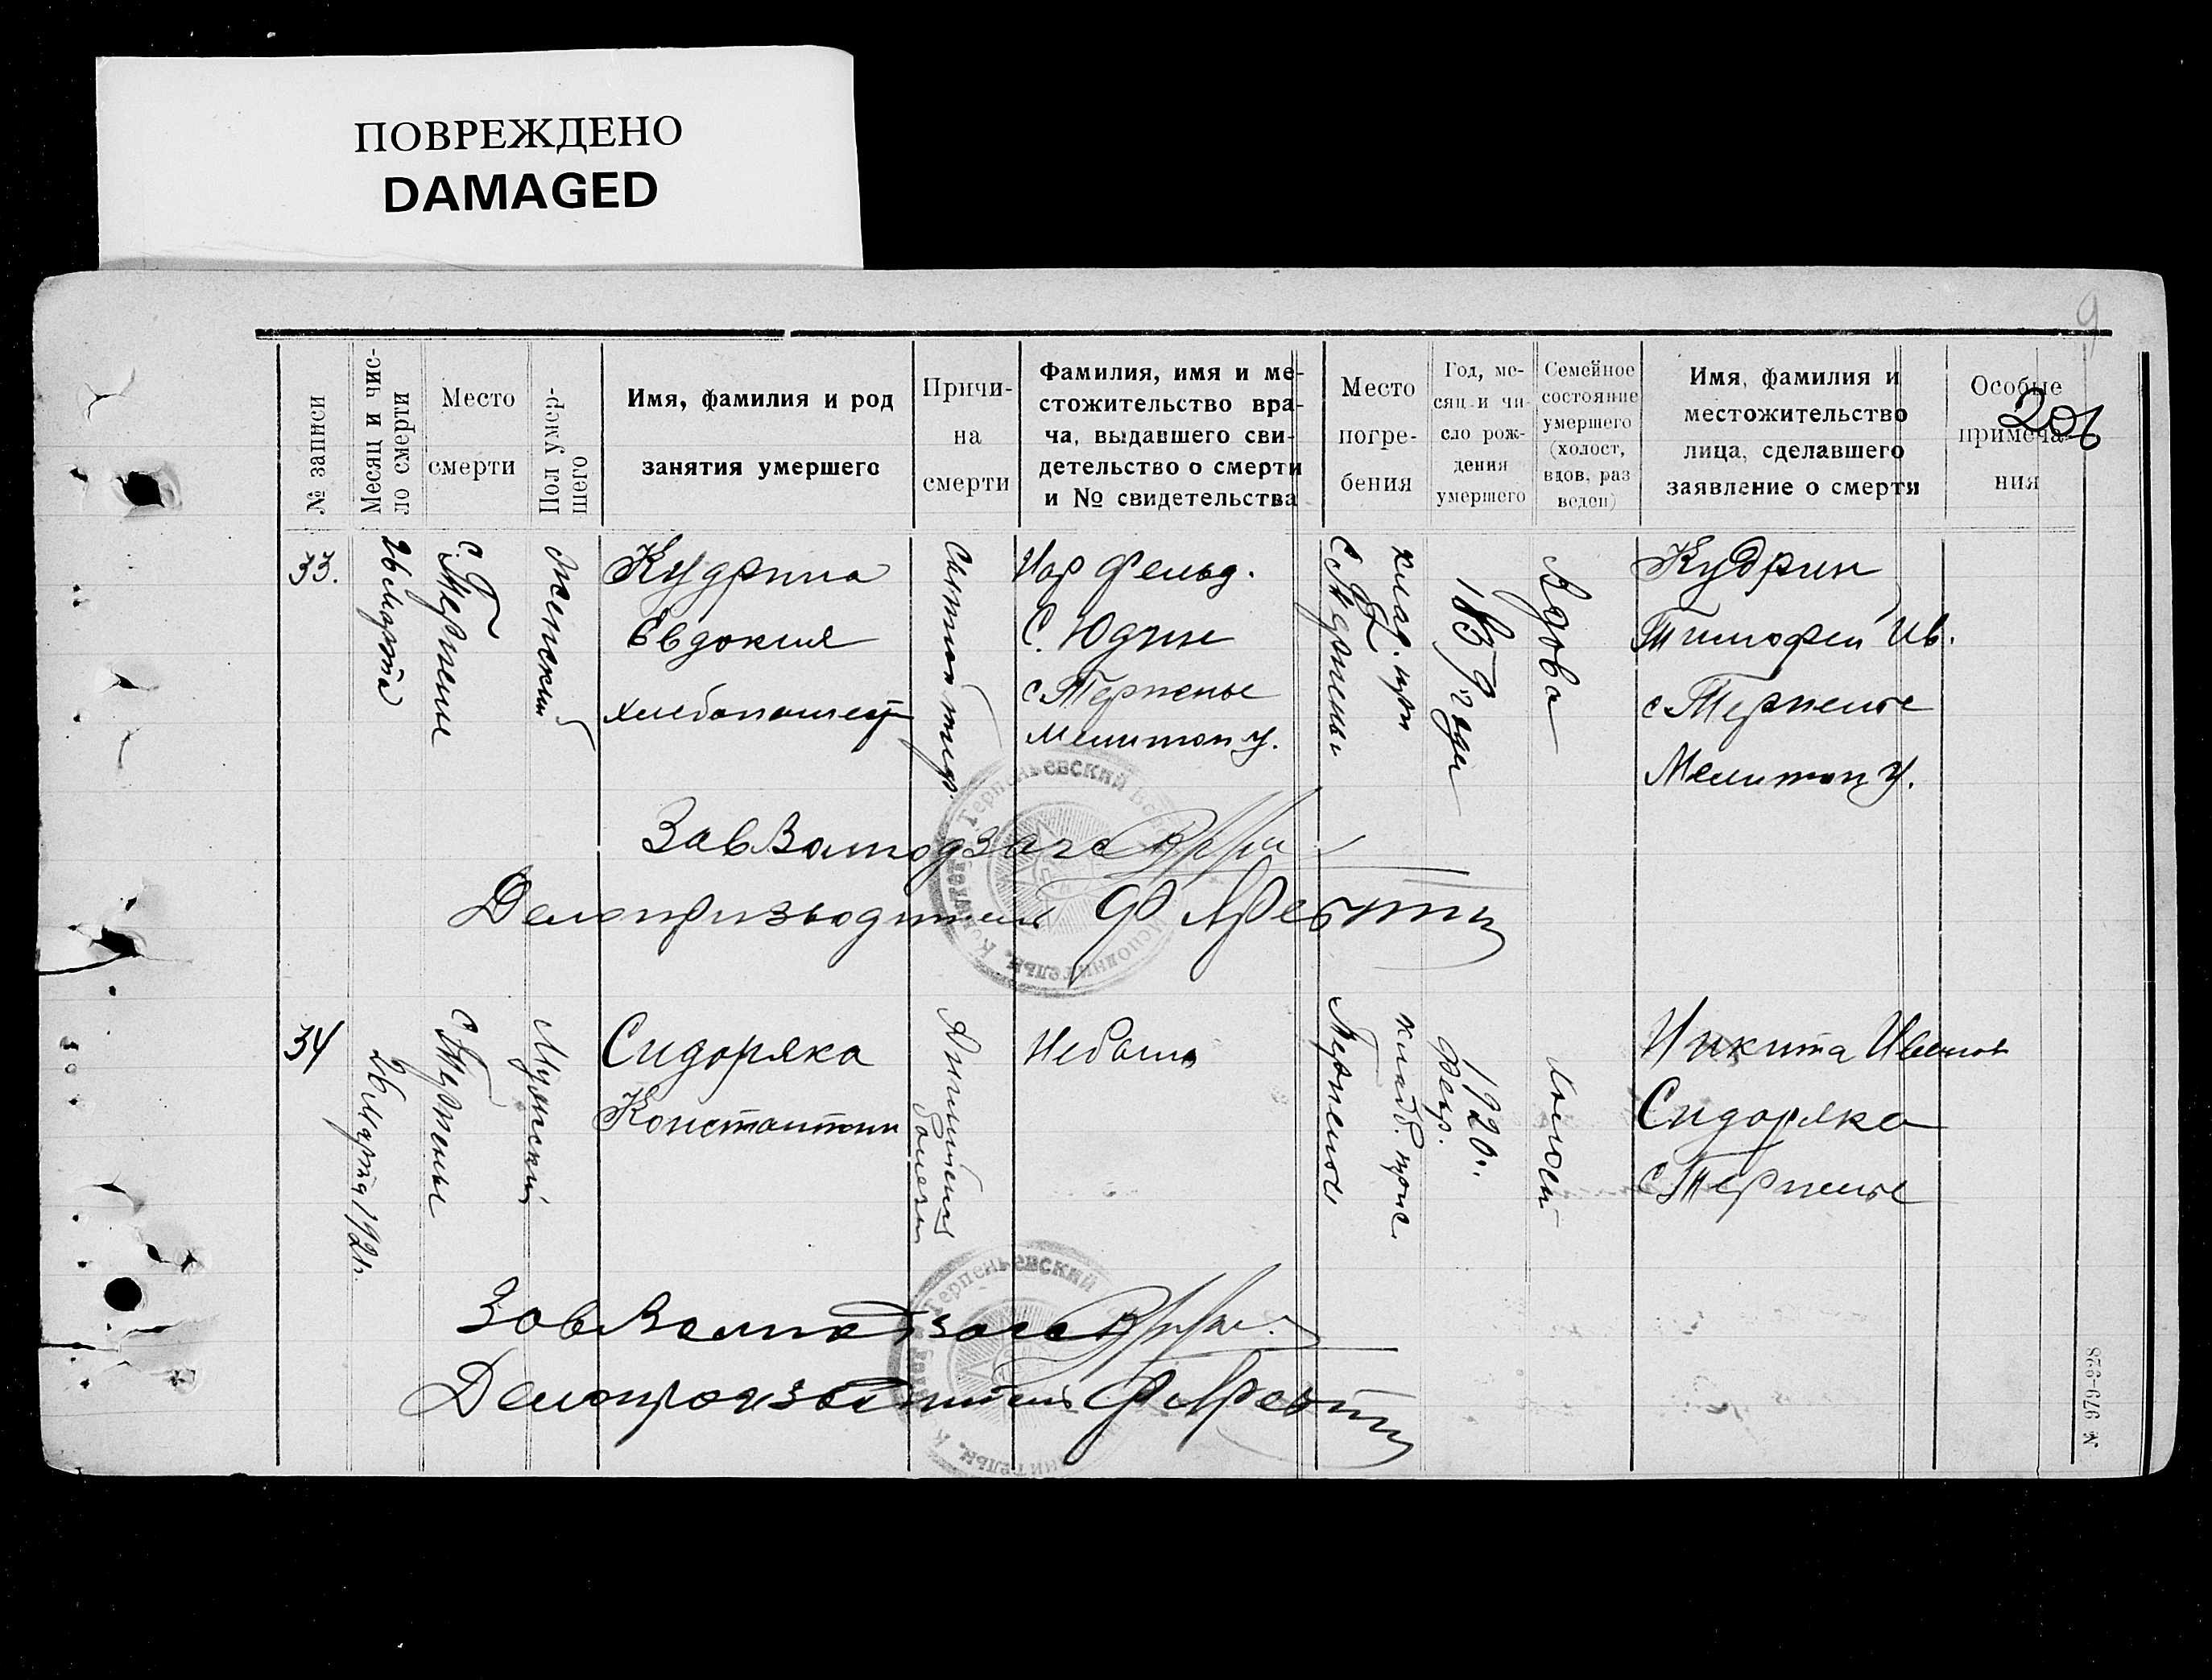 ПОВРЕЖДЕНО
DAMAGED
9
206
№ записи
Месяц и чис-
ло смерти
Место
смерти
Пол умер-
шего
Имя, фамилия и род
занятия умершего
Причи-
на
смерти
Фамилия, имя и ме-
стожительство вра-
ча, выдавшего сви-
детельство о смерти
и № свидетельства
Место
погре-
бения
Год, ме-
сяц и чи-
сло рож-
дения
умершего
Семейное
состояние
умершего
(холост,
вдов, раз
веден)
Имя, фамилия и
местожительство
лица, сделавшего
заявление о смерти
Особые
примеча-
ния
33.
26 марта
с. Терпенье
Женский
Кудрина
Евдокия
хлебопашец
Сыпной тиф.
фельд.
С. Юдин
с Терпенье
Мелитоп у.
клад. при
с Терпеньи
1859 года
Вдова
Кудрин
Тимофей Ив.
с Терпенье
Мелитоп у.
ЗавВолподзагс
Делопроизводитель
Терпеньевский
Исполнительн. Комитет
34
26 Марта 1921г.
с Терпенье
Мужской
Сидоряка
Константин
болезни
Небыло
кладб.
Терпенье
1920г.
Февр.
Холост
Никита Иванов
Сидоряка
с Терпенье
ЗавВолподзагс
Делопроизводитель
Терпеньевский
№ 979-928